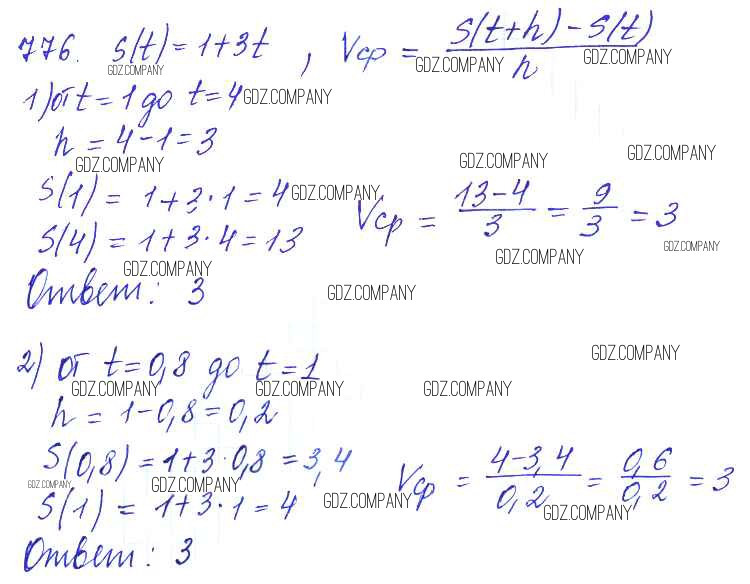 776. S(t) = 1+3t , Vср = (S(t+h) - S(t)) / h
GDZ.COMPANY GDZ.COMPANY GDZ.COMPANY
1) от t = 1 до t = 4 GDZ.COMPANY
h = 4-1 = 3
GDZ.COMPANY GDZ.COMPANY GDZ.COMPANY
S(1) = 1+3·1 = 4 GDZ.COMPANY
S(4) = 1+3·4 = 13
Vср = (13-4) / 3 = 9/3 = 3
GDZ.COMPANY GDZ.COMPANY GDZ.COMPANY
Ответ: 3 GDZ.COMPANY
2) от t = 0,8 до t = 1
GDZ.COMPANY
GDZ.COMPANY GDZ.COMPANY GDZ.COMPANY
h = 1-0,8 = 0,2
S(0,8) = 1+3·0,8 = 3,4
GDZ.COMPANY GDZ.COMPANY
S(1) = 1+3·1 = 4 GDZ.COMPANY
Vср = (4-3,4) / 0,2 = 0,6/0,2 = 3
GDZ.COMPANY
Ответ: 3